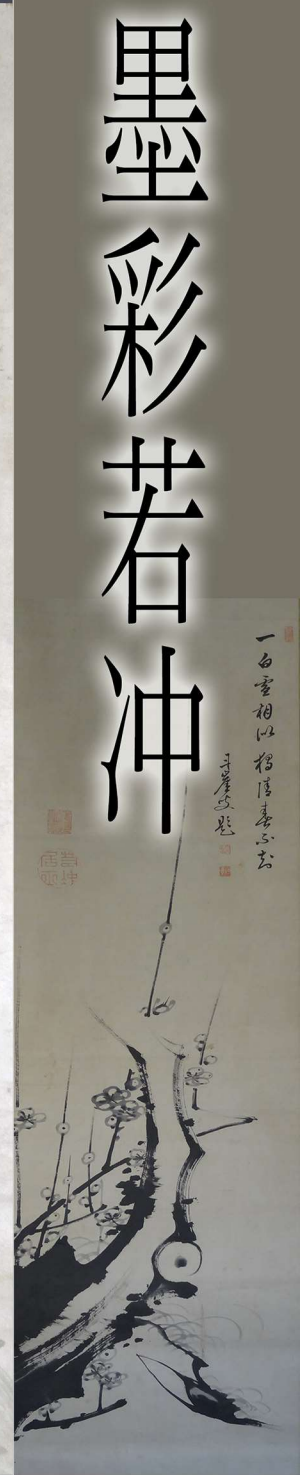 墨彩若冲
一白雪相似
獨清春不知
題